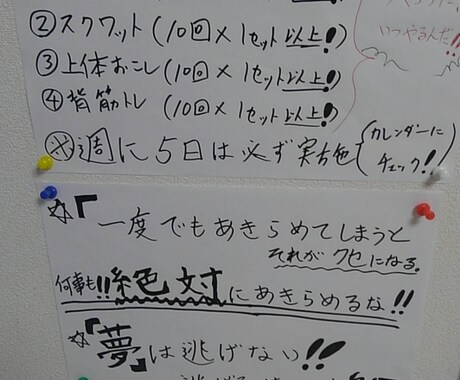 ②スクワット(10回×1セット以上!)
いつやるんだ!!
③上体おこし(10回×1セット以上!)
④背筋トレ (10回×1セット以上!)
※週に5日は必ず実施(カレンダーに
チェック!!)
☆『一度でもあきらめてしまうと
それがクセになる。
何事も!!絶対にあきらめるな!!
☆『夢』は逃げない!!